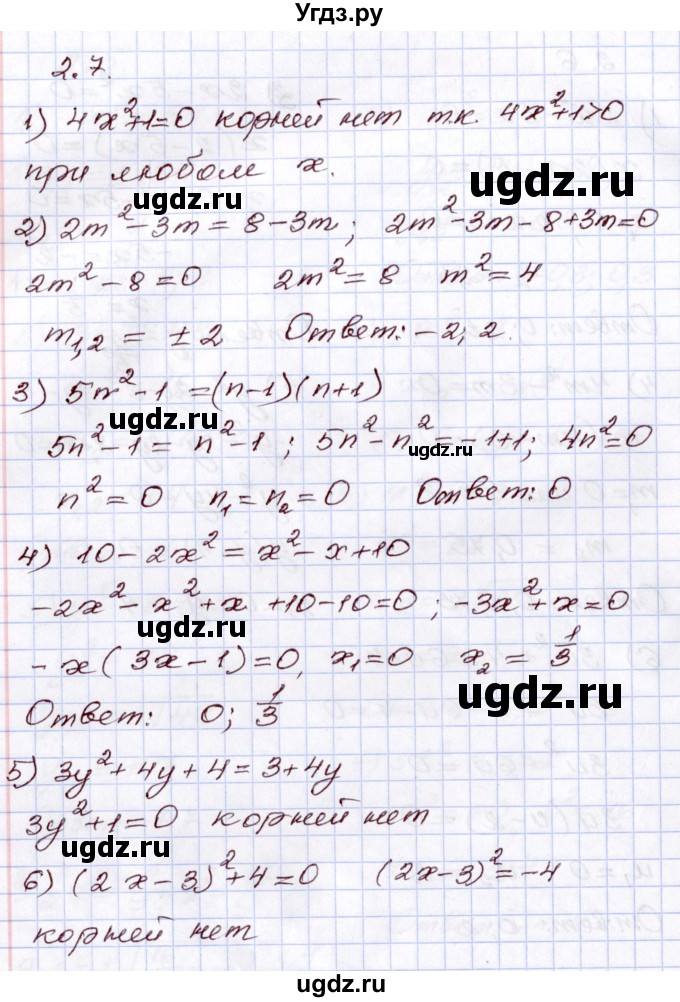 Угдз.ру
2.7.
1) 4x²+1=0 корней нет т.к. 4x²+1>0
при любом x.
ugdz.ru
ugdz.ru
2) 2m²-3m = 8-3m; 2m²-3m-8+3m=0
2m²-8=0 2m²=8 m²=4
m₁,₂ = ±2 Ответ: -2; 2.
ugdz.ru
3) 5n²-1 = (n-1)(n+1)
5n²-1 = n²-1; 5n²-n²=-1+1; 4n²=0
ugdz.ru
n²=0 n₁=n₂=0 Ответ: 0
4) 10-2x² = x²-x+10
-2x²-x²+x+10-10=0; -3x²+x=0
ugdz.ru
-x(3x-1)=0, x₁=0 x₂ = 1/3
ugdz.ru
Ответ: 0; 1/3
5) 3y²+4y+4=3+4y
3y²+1=0 корней нет
ugdz.ru
6) (2x-3)²+4=0 (2x-3)²=-4
корней нет
ugdz.ru